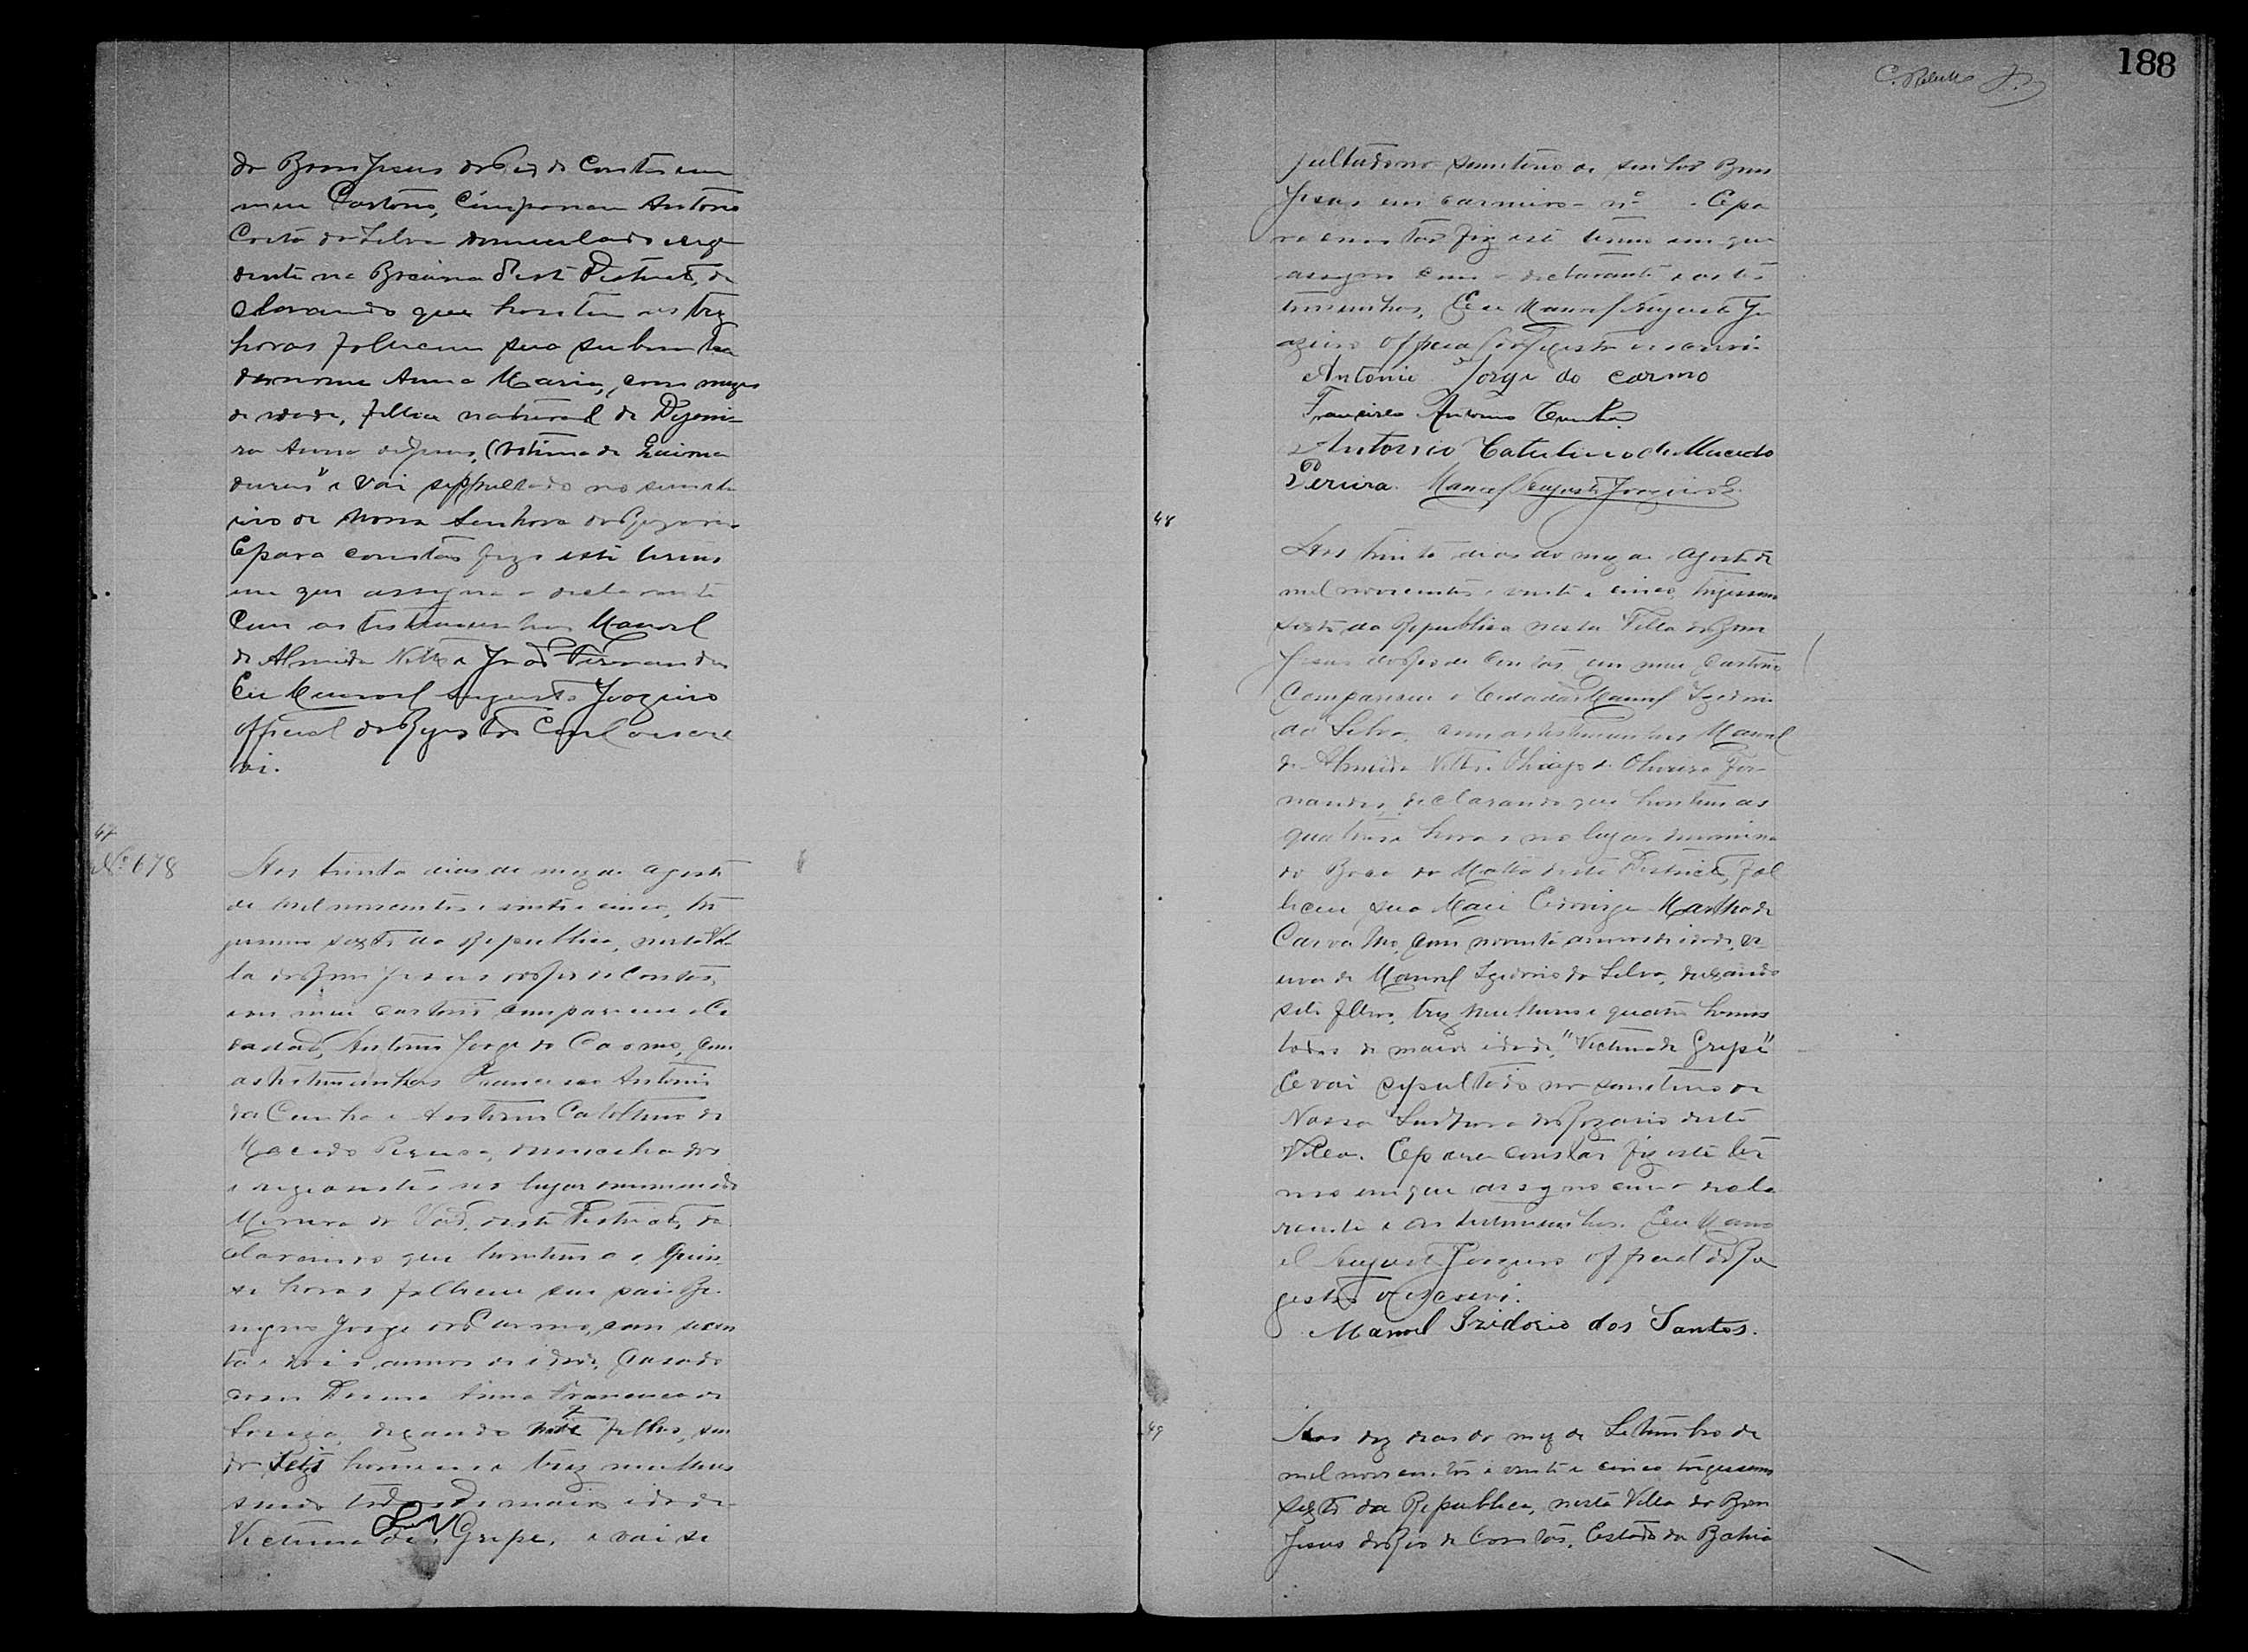 do Bom Jesus do Rio de Contas em
meu Cartorio, Compareceu Antonio
Costa da Silva domiciliado e rezi
dente na Breuna deste Districto, de
clarando que hontem as trez
horas falleceu sua sobrinha
de nome Anna Maria, com mezes
de idade, filha natural de Dejani-
ra Anna de Jesus, (Vitima de
" e vai seppultado no semite
rio de Nossa Senhora do Rozario
E para constar fiz este termo
em que assigna o declarante
Com as testemunhas Manoel
de Almeida Netto e João Fernandes
Eu Manoel Augusto Joazeiro
Official do Registro Civil o escre
vi.
47
Nº 678
Aos trinta dias do mez de Agosto
de mil novecentos e vinte e cinco, tri
gessimo sexto da Republica, nesta Vil
la do Bom Jesus do Rio de Contas,
em meu cartorio compareceu o Ci
dadão, Antonio Jorge do Carmo, com
as testemunhas Francisco Antonio
da Cunha e Antonio Catulino de
Macedo Pereira, domiciliados
e rezidentes no lugar denominado
deste Districto, de
clarando que hontem as quin
ze horas falleceu seu pai
Jorge do Carmo, com
e dois annos de idade, Casado
com Donna Anna Francisca de
Souza, deixando filhos, sen
do sete homens e trez mulheres
sendo todos de maior idade
Victima de Gripe, e vai se
188
pultado no semiterio do Senhor Bom
Jesus em carneiro nº . E pa
ra constar fiz este termo em que
assigno com o declarante e as tes
timunhas, Eu Manoel Augusto Jo
azeiro Official do Registro o escrevi
Antonio Jorge do Carmo
Francisco Antonio Cunha
Antonio Catulino de Macedo
Pereira. Manoel Augusto Joazeiro
48
Aos trinta dias do mez de Agosto de
mil novecentos e vinte e cinco, trigessimo
sexto da Republica nesta Villa do Bom
Jesus do Rio de Contas, em meu Cartorio
Compareceu o Cidadão Manoel Izidorio
da Silva, com as testimunhas Manoel
de Almeida Netto e Thiago de Oliveira Fer
nandes, declarando que hontem as
quatorse horas no lugar denomina
do Boca da Matta deste Districto, fal
leceu sua Mãe Martha de
Carvalho, com noventa annos de idade, vi
uva de Manoel Izidorio da Silva, deixando
sete filhos, trez mulheres e quatro homens
todos de maior idade, "Victima de Gripe"
E vai sepultado no semiterio de
Nossa Senhora do Rozario desta
Villa. E para constar fiz este ter
mo em que assigno com o decla
rante e as testimunhas. Eu Mano
el Augusto Joazeiro official do Re
gistro o escrevi.
Manoel Izidorio dos Santos.
49
Aos dez dias do mez de Setembro de
mil novecentos e vinte e cinco trigessimo
sexto da Republica, nesta Villa do Bom
Jesus do Rio de Contas, Estado da Bahia